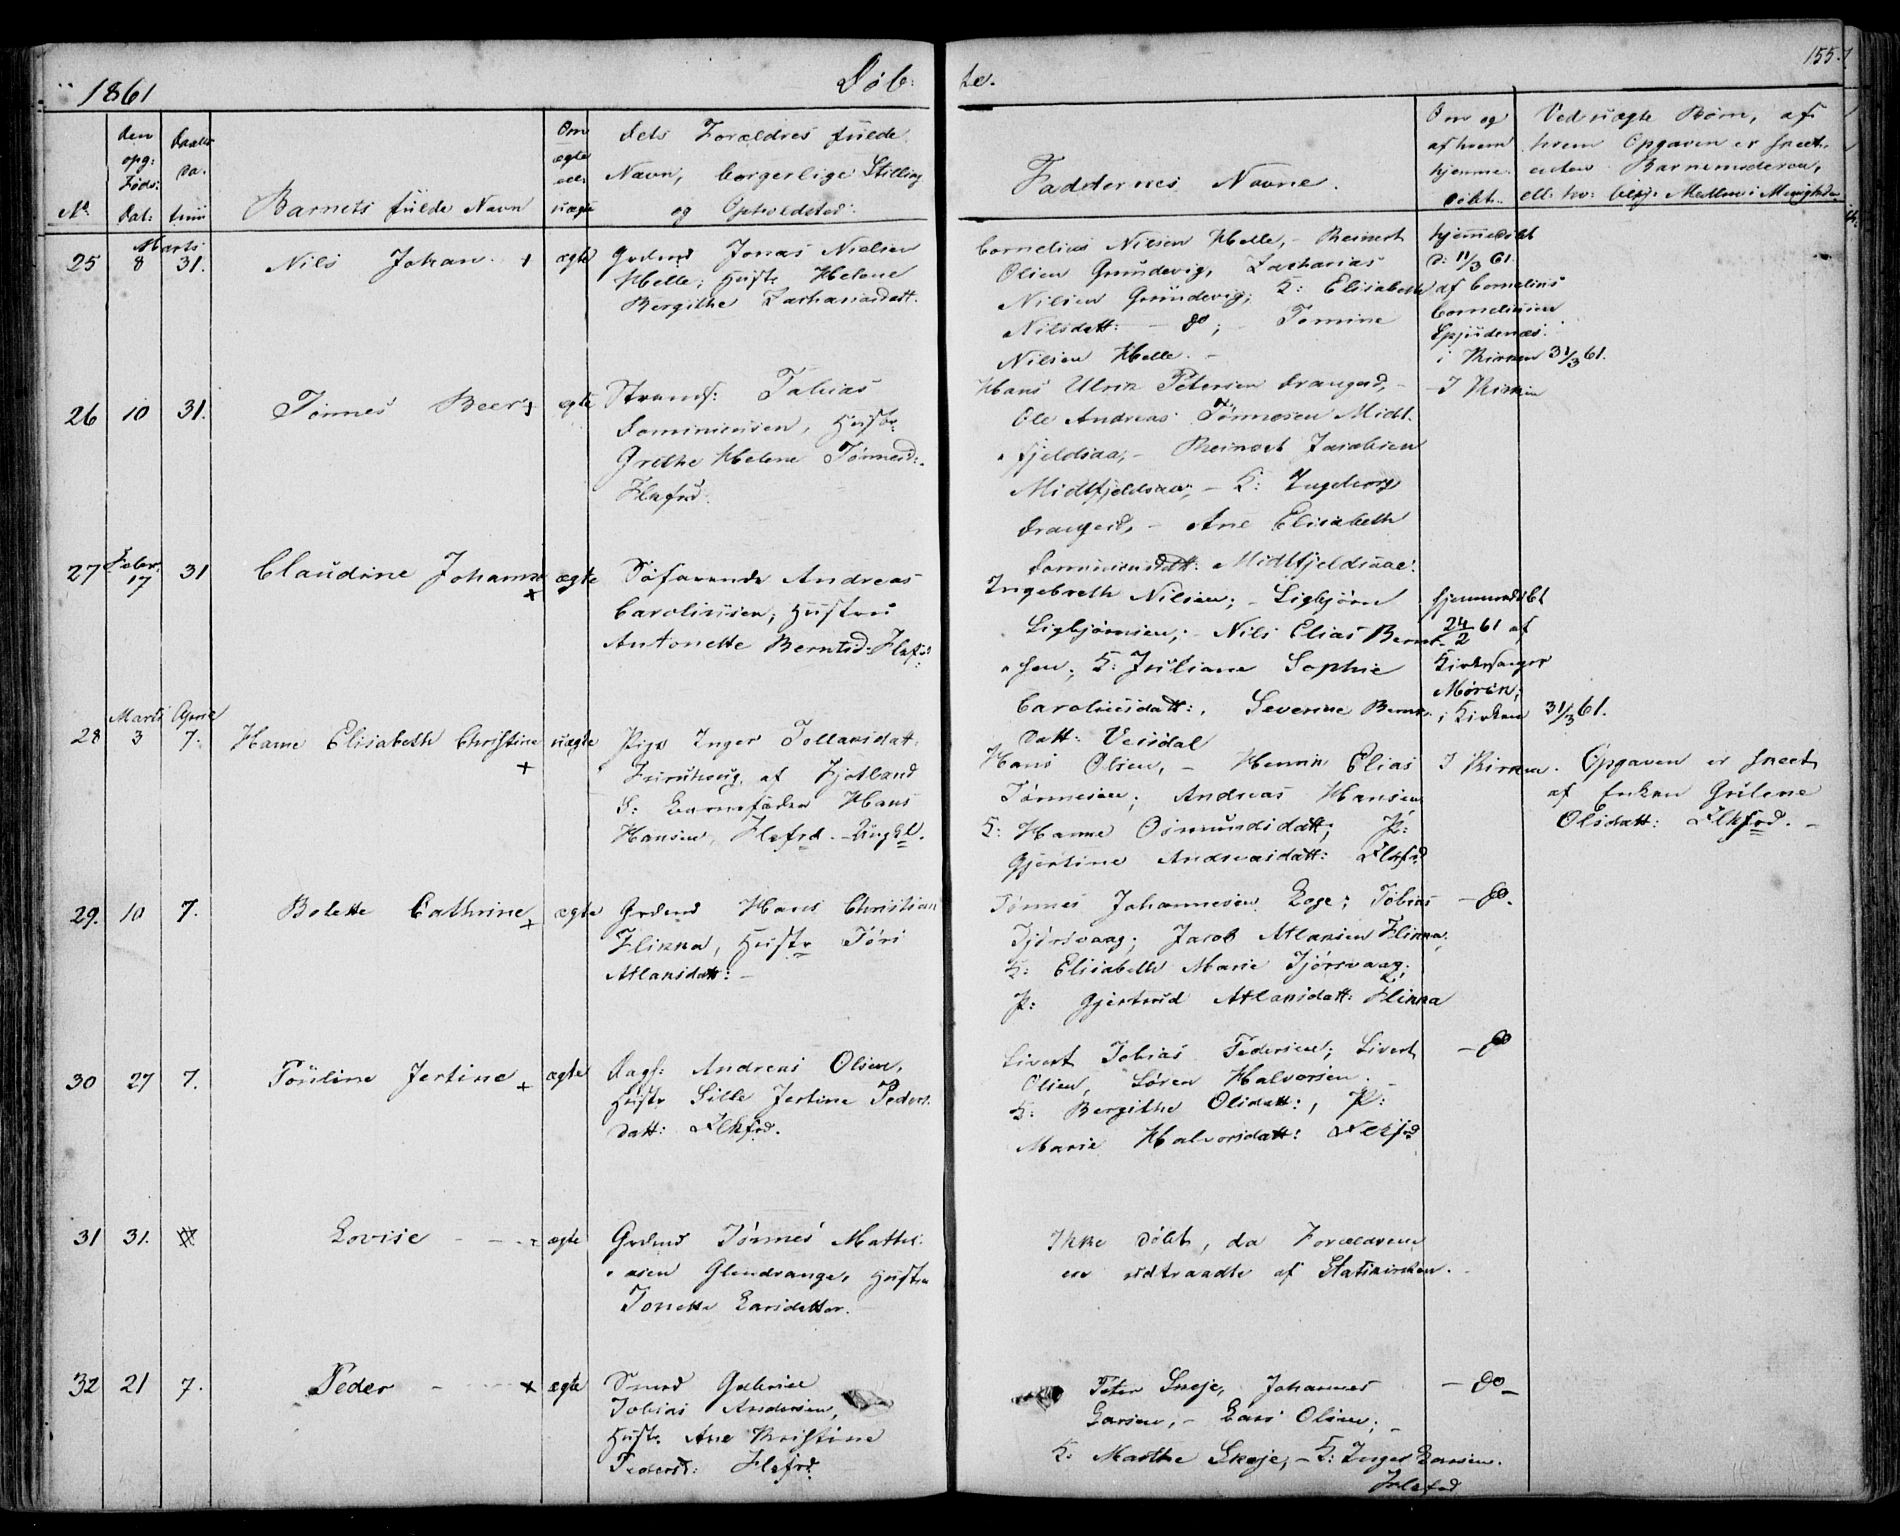 1861
Døb-
te.
155.
No
Den opg: Føds: Dat:
Daabs Da- tum
Barnets fulde Navn
Om ægte ell: uægte
Dets Forældres fulde
Navn, borgerlige Stilling
og Opholdsted:
Faddernes Navne.
Om og af hvem hjemme- døbt.
Ved uægte Børn, af
hvem Opgaven er skeet,
enten Barnemoderen,
Marts
25 8 31. Nils Johan ægte
Grdmd Jonas Nielsen
Helle; Hustr Helene
Bergithe Zachariasdatt.
Cornelius Nilsen Helle, - Reinert
Olsen Grundevig, Zacharias
Nilsen Grundevig; K: Elisabeth
Nilsdatt: - do; - Tomine
Nilsen Helle. -
hjemmedøbt
d: 11/3 61.
af Cornelius
Corneliusen
i Kirken 31/3 61.
26 10 31. Tønnes Beer ægte
Strands: Tobias
Dominiensen, Hustr
Grethe Helene Tønnesd:
Flefrd.
Hans Ulrik Petersen Drangeid, -
Ole Andreas Tønnesen Midt-
fjeldsaa, - Reinert Jacobsen
Midtfjeldsaa; - K: Ingeborg
Drangeid, - Ane Elisabeth
Midtfjeldsaae:
- I Kirken
Febr:
27 17 31 Claudine Johanne ægte
Søfarende Andreas
Carolinsen, Hustru
Antonette Berntsd: Flefrd
Ingebreth Nilsen; - Sigbjørn
Sigbjørnsen; - Nils Elias Bernt-
sen; K: Juliane Sophie
Carolinsdatt:, Severine Bernt-
datt: Vesdal
hjemmedøbt
24/2 61 af
Kirkesanger
i Kirken 31/3 61.
Marts April
28 3 7. Hanne Elisabeth Christine uægte
Pige Inger Tollaksdatt.
af Fjotland
S: Barnefader Hans
Hansen, Flefrd - Ungkl.
Hans Olsen, - Henrik Elias
Tønnesen; Andreas Hansen
K: Hanne Osmundsdatt; P:
Gjertine Andreasdatt: Flkfrd
I Kirken.
Opgaven er skeet
af Enken Gulene
Olsdatt: Flkfrd. -
29. 10 7. Bolette Cathrine ægte
Grdmd Hans Christian
Flikka, Hustr Tøri
Atlaksdatt: -
Tønnes Johannesen Loge; Tobias
Tjørsvaag; Jacob Atlaksen Flikka;
K: Elisabeth Marie Tjørsvaag;
P: Gjertrud Atlaksdatt: Flikka
- do.
30 27 7. Pouline Jertine ægte
Dags: Andreas Olsen,
Hustr Sille Jertine Peders-
datt: Flkfrd.
Sivert Tobias Pedersen; Sivert
Olsen, Søren Halvorsen.
K: Bergithe Olsdatt:, P:
Marie Halvorsdatt: Flekfrd
- do
31 31. Lovise - - - ægte
Grdmd Tønnes Mathi-
asen Glendrange, Hustru
Tonette Larsdatter.
Ikke døbt, da Forældrene
ere udtraadte af Statskirken.
32 21 7. Peder - ægte
Smed Gabriel
Tobias Andersen,
Hustr. Ane Kristine
Pedersd: Flefrd
Peter Skeje, Johannes
Larsen, - Lars Olsen; -
K: Marthe Skeje, - K: Inger Larsen.
Flefrd
- do -